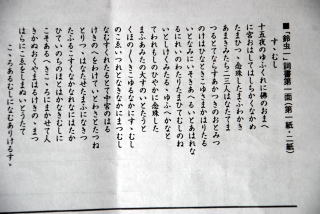 ■「鈴虫一」詞書第一面（第一紙・二紙）
すゞむし
十五夜のゆふくれに佛のおまへ
に宮おはしてはしちかくなかめ
たまひつゝ念珠したまふわかき
あまきみたち二三人はなたてま
つるとてならすあかつきのおとみつ
のけはひなときこゆさまかはりたる
いとなみにいそきあへるいとあはれな
るにれいのわたりたまひてむしのね
いとしけくみたるゝゆふへかなと
てわれもしのひやかに念珠した
まふあみたの大すのいとたうと
くほの〴〵きこゆるなかにすゞむし
のこゑいつれとなきなかにまつむし
なむすくれたるとて中宮のはる
けきのへをわけていとわさとたつね
とりつゝはなたせたまふになきつ
ひてのちのほとはかなきむしに
こそあるへきこゝろにまかせて人
きかぬおくやまはるけきのゝまつ
こゝろあるむしになむありけるすゞ